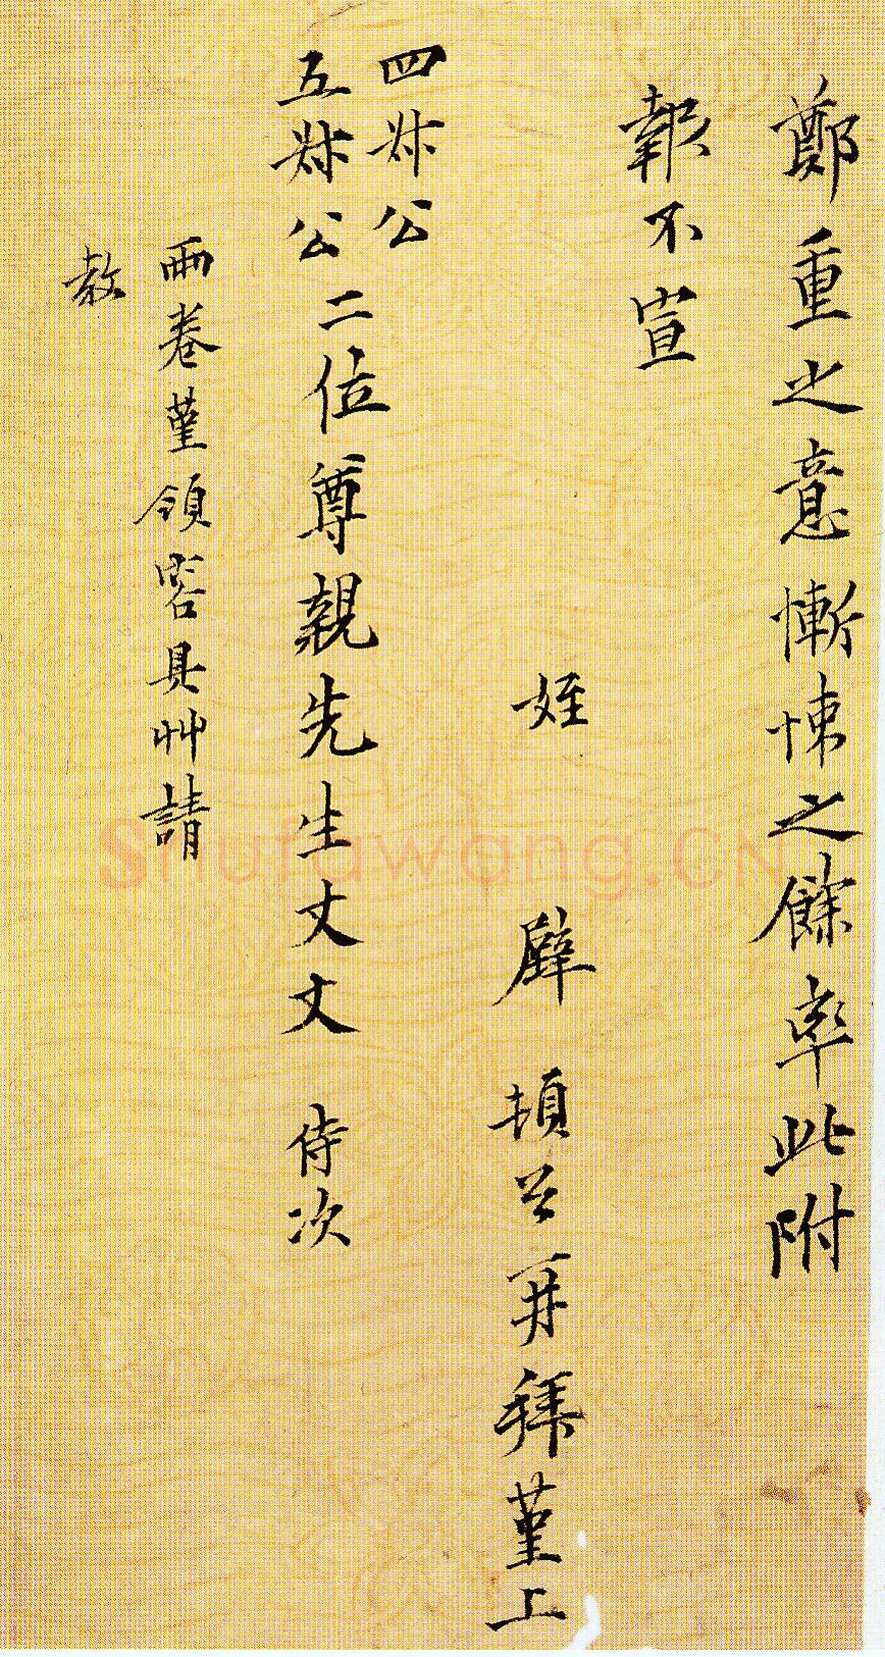 鄭重之意慚悚之餘率此附
報不宣
姪 壁 頓首再拜堇上
四叔公
五叔公二位尊親先生丈丈 侍次
兩卷堇領容具艸請
教
shufawang.cn